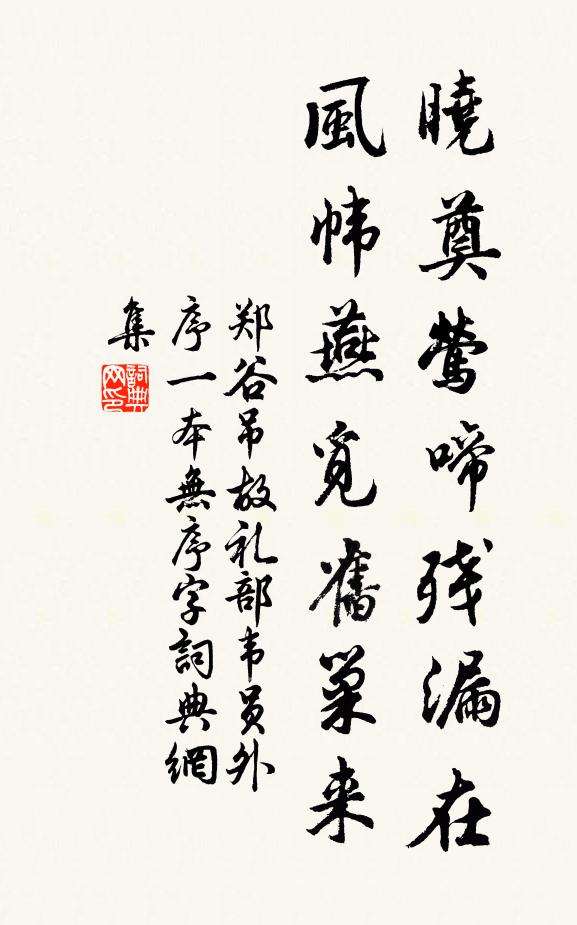 曉奠鶯啼残漏在
風帏燕覓舊巢来
郑谷吊故礼部韦员外
序一本無序字詞典網
集
詞典
网印